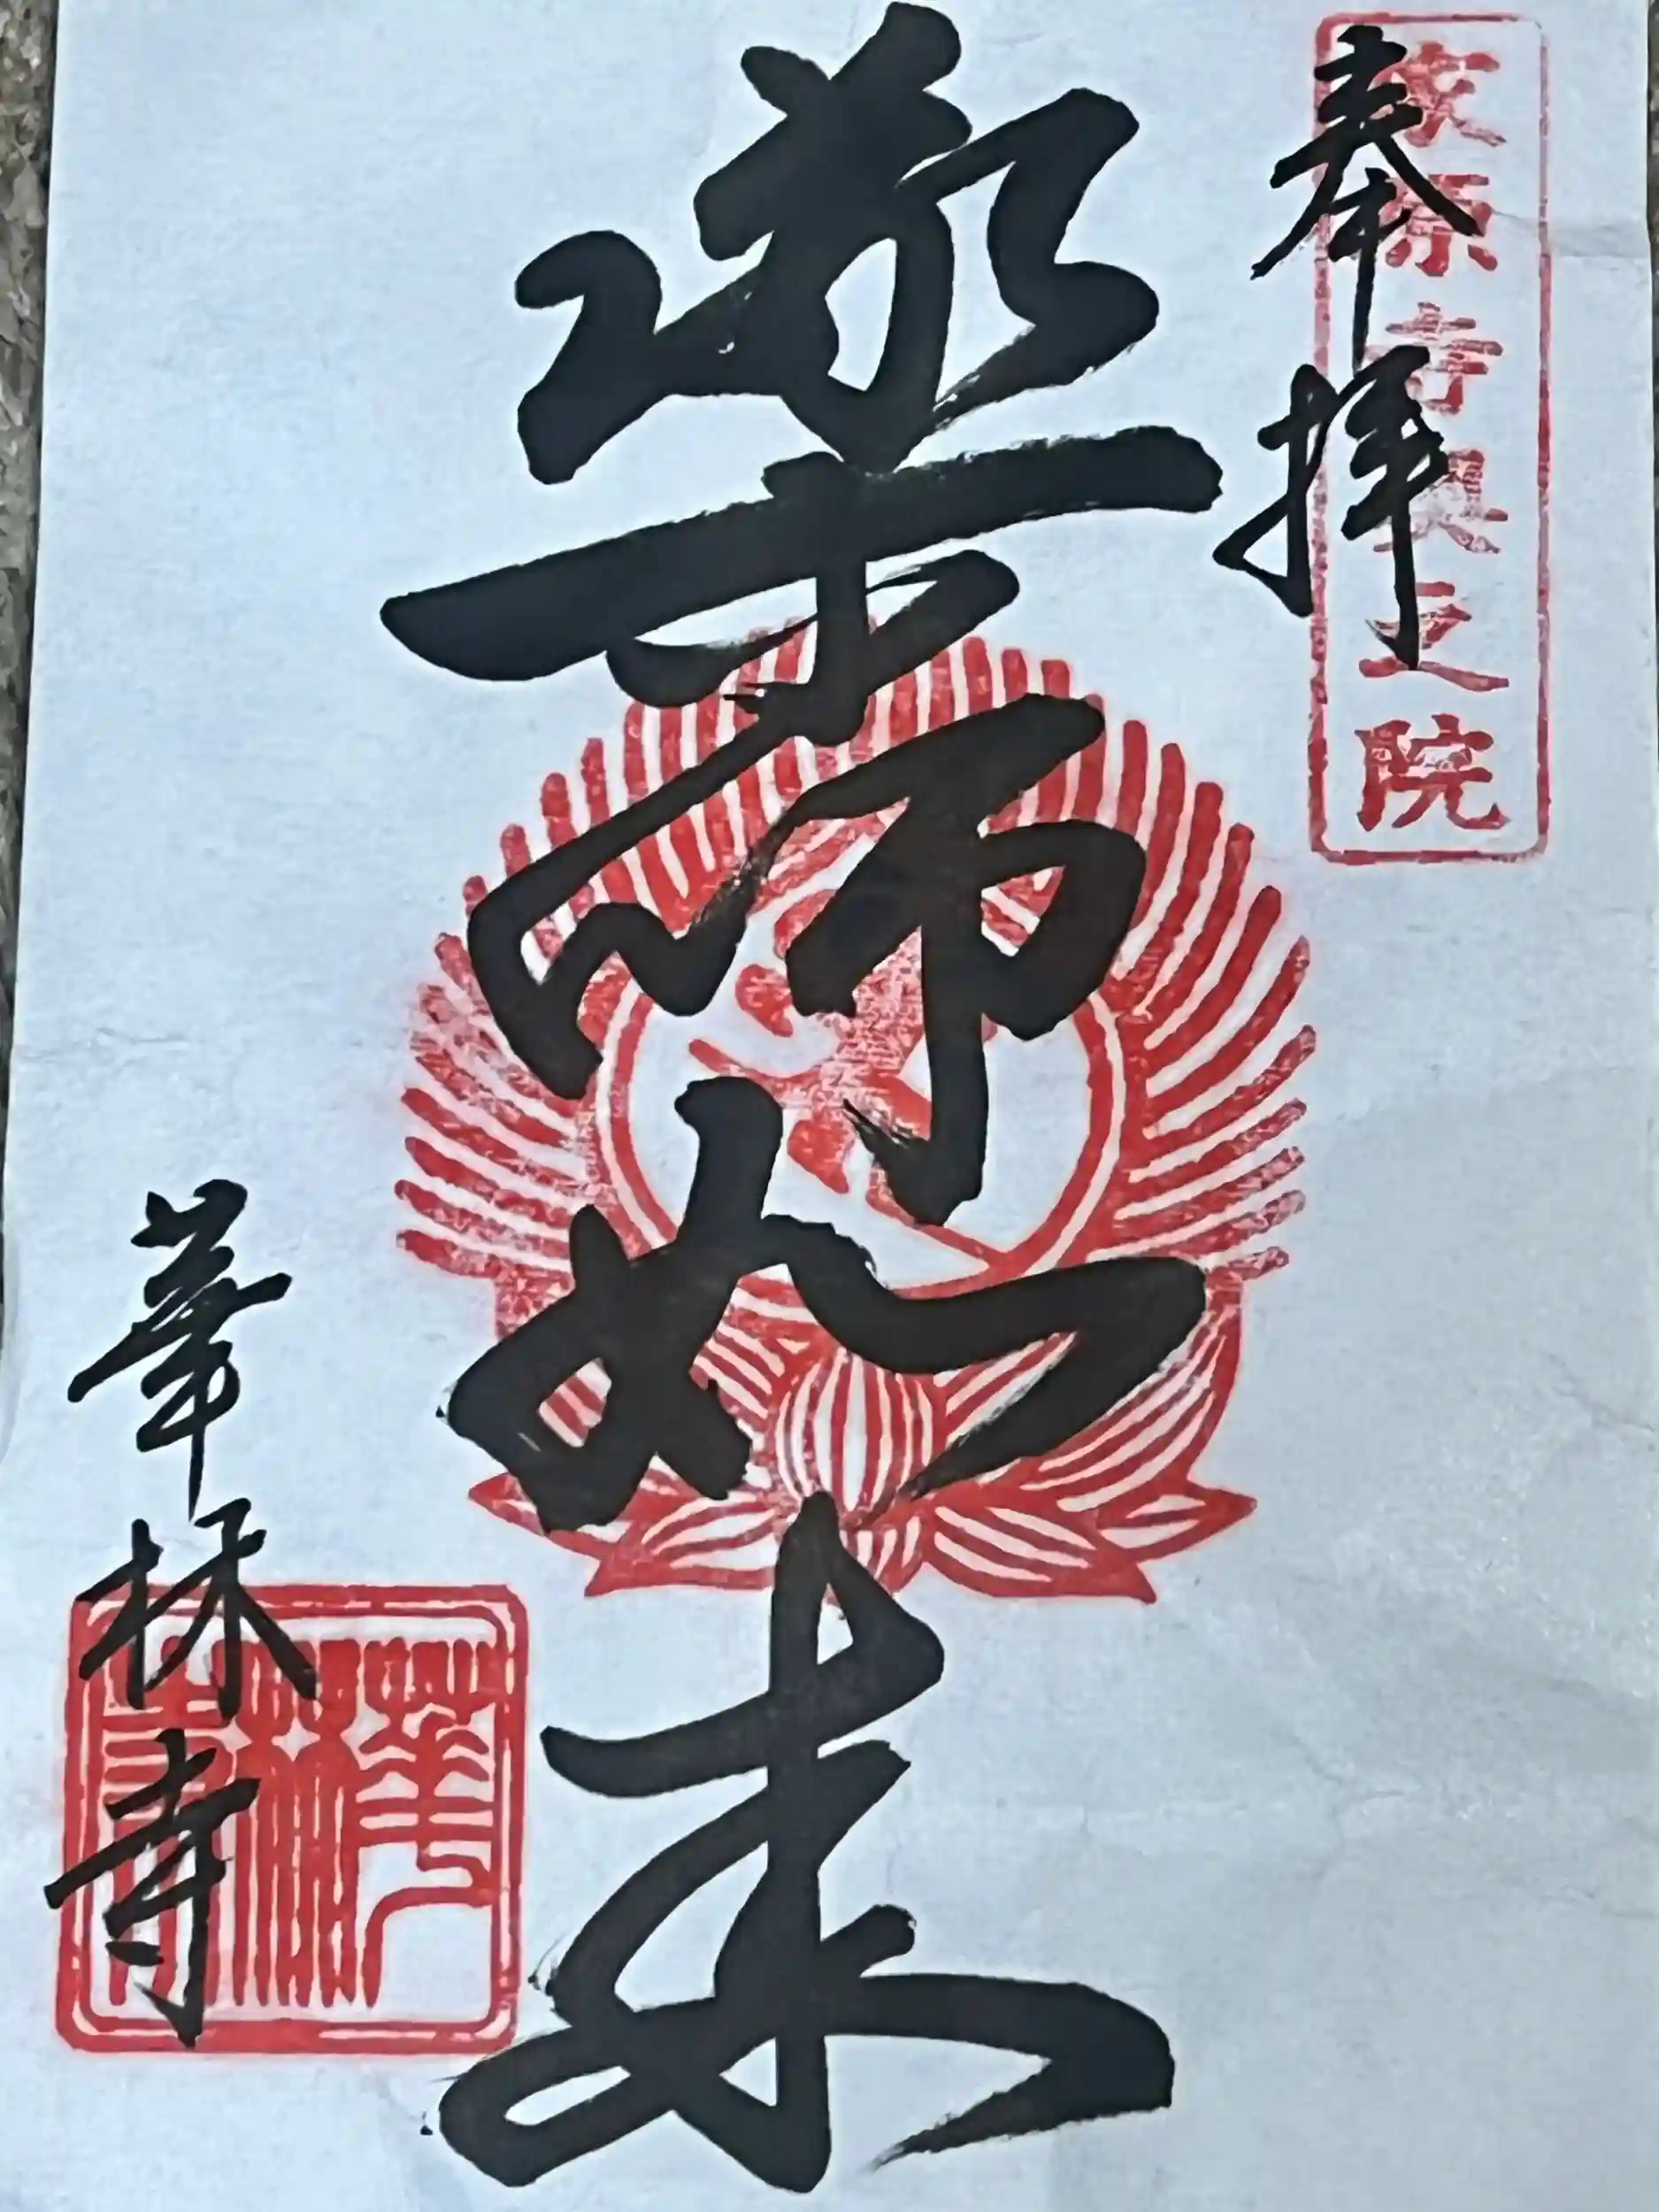 奉拝
原寺奥之院
薬師如来
華林寺
華林寺